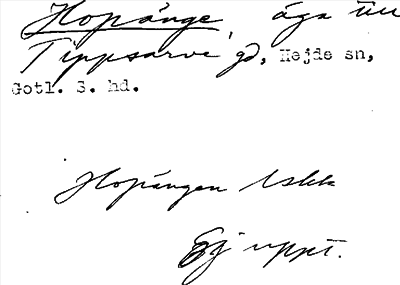 Hopänge, äga till
Tippsarve gd, Hejde sn,
Gotl. S. hd.
Hopängen
Ej uppt.